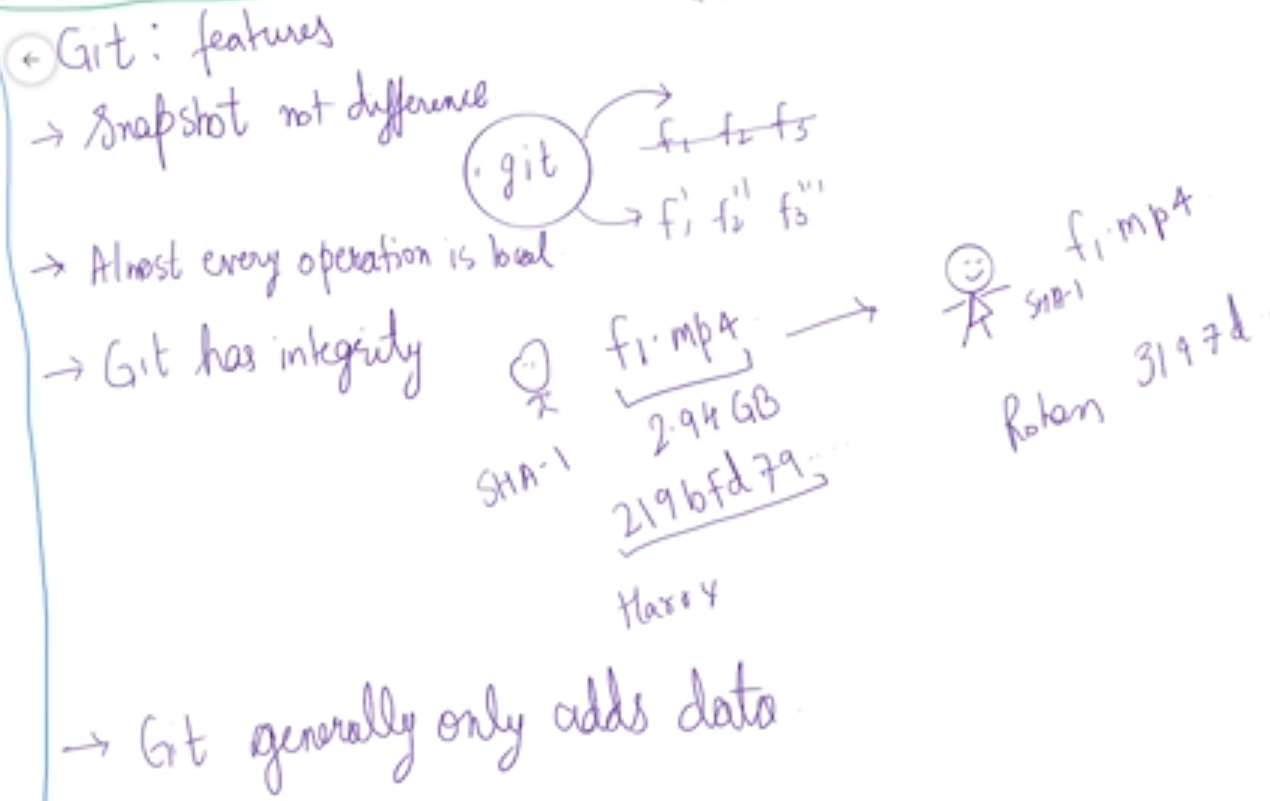 Git: features
→ Snapshot not difference
git
f1 f2 f3
f1' f2'' f3'''
→ Almost every operation is local
→ Git has integrity
f1.mp4
2.94 GB
SHA-1
219bfd79...
Harry
f1.mp4
SHA-1
3197d
Rohan
→ Git generally only adds data